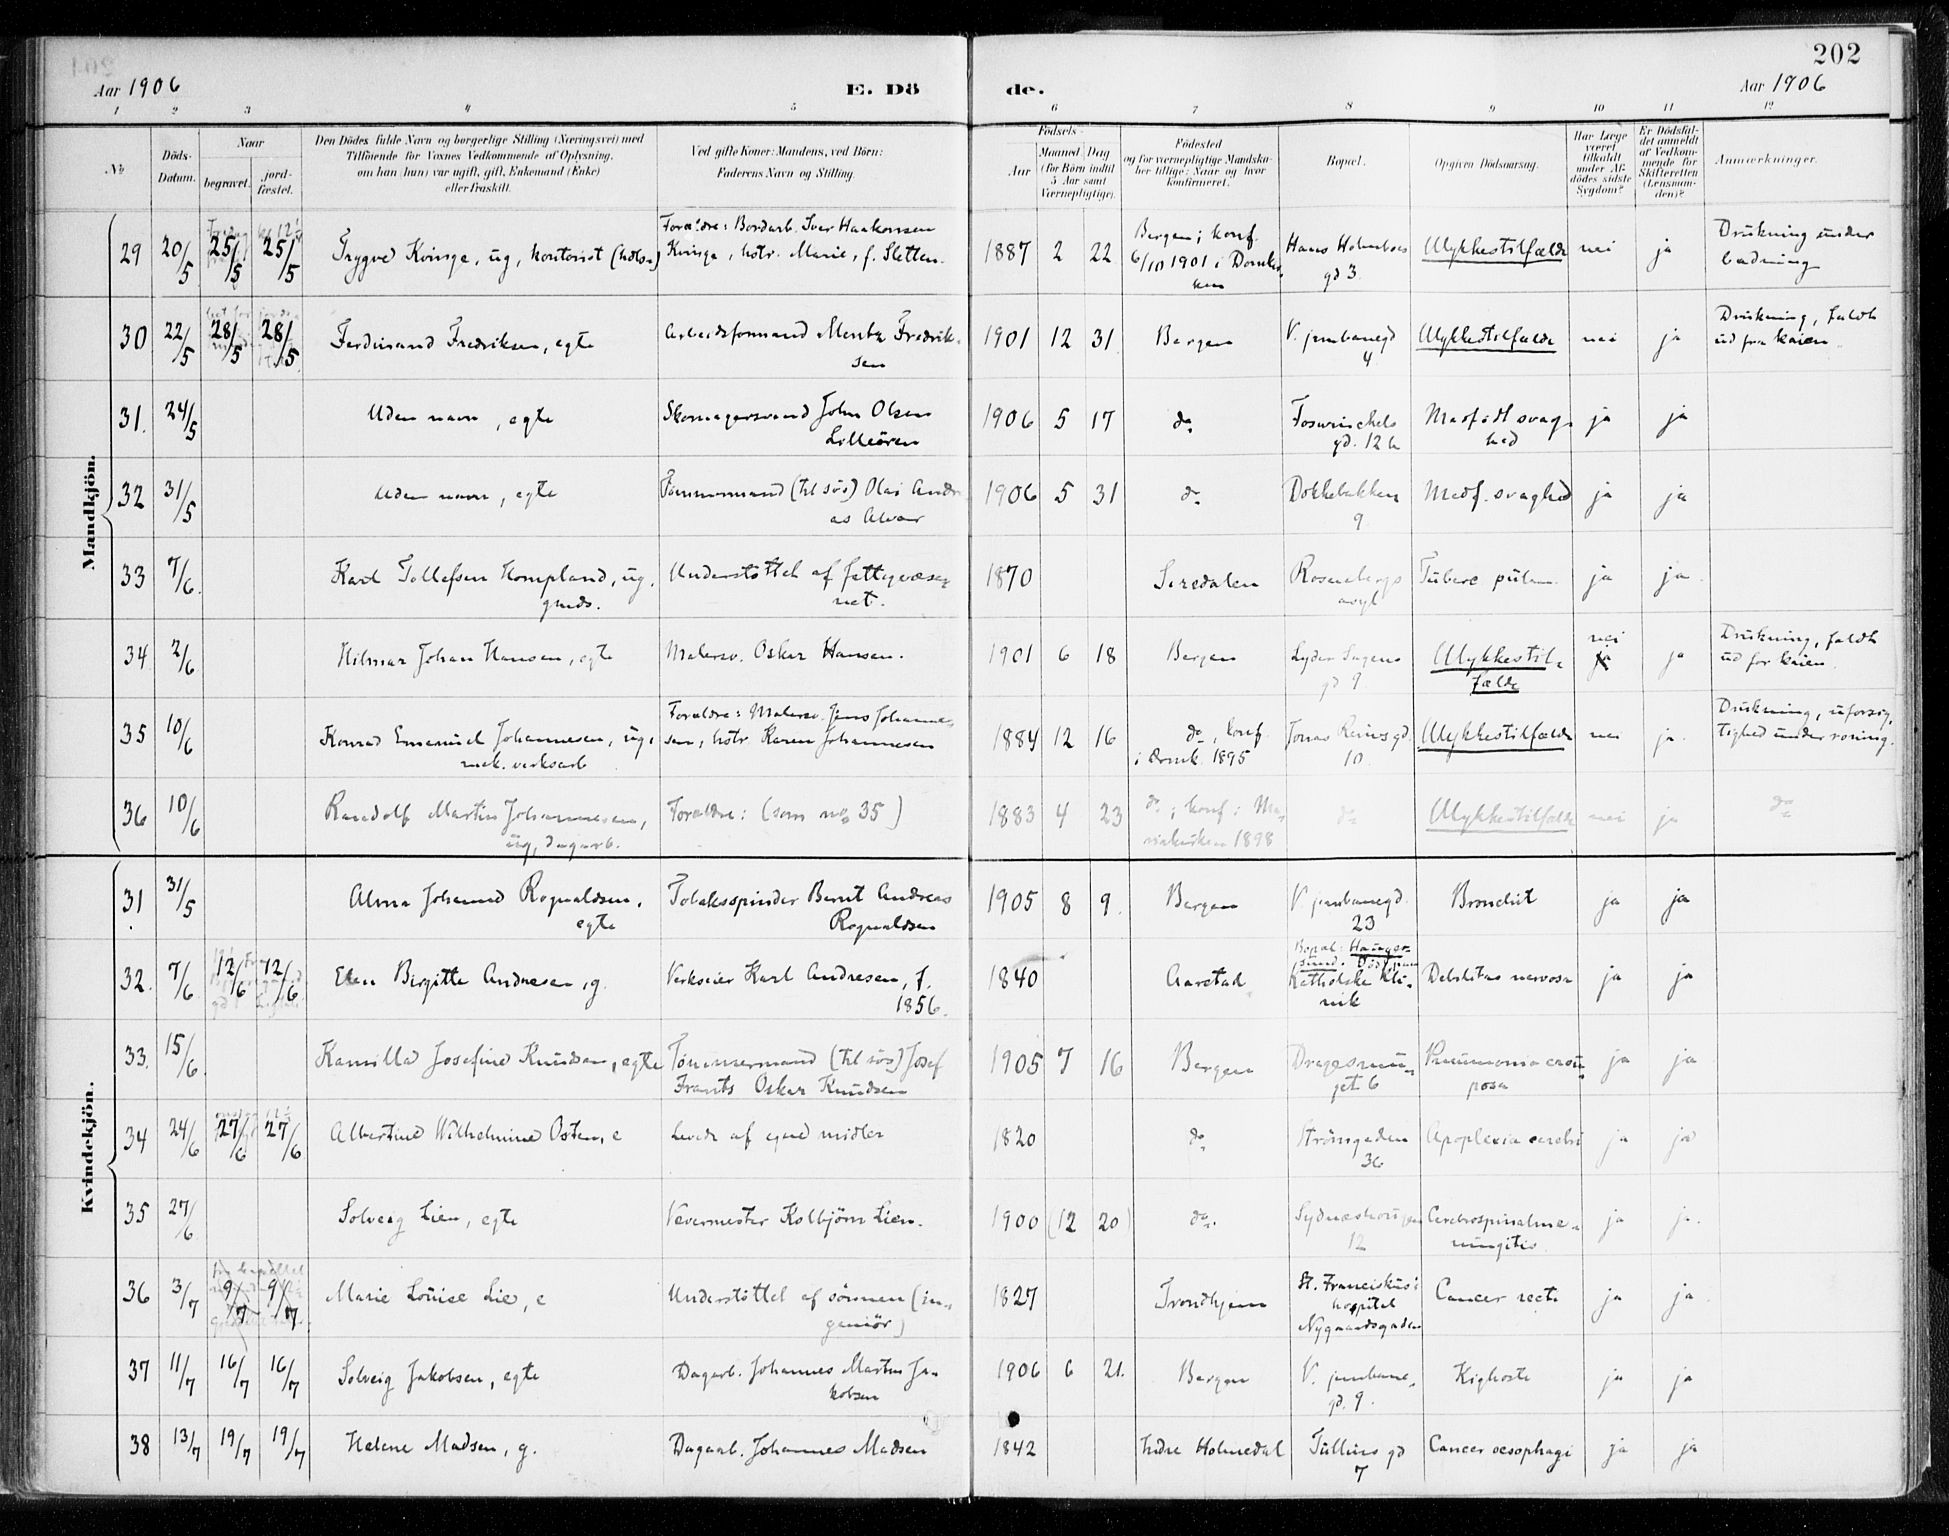 202
Aar 1906 E. Dö de. Aar 1906
1 2 3 4 5 6 7 8 9 10 11 12
No.
Döds-
Datum.
Naar
begravet.
jord-
fæstet.
Den Dödes fulde Navn og borgerlige Stilling (Næringsvei) med
Tilföiende for Voxnes Vedkommende af Oplysning,
om han (hun) var ugift, gift, Enkemand (Enke)
eller fraskilt.
Ved gifte Koner: Mandens, ved Börn:
Faderens Navn og Stilling.
Födsels-
Aar
Maaned Dag
(for Börn indtil
5 Aar samt
Værnepligtige).
Födested
og for værnepligtige Mandska-
ber tillige: Naar og hvor
konfirmeret.
Bopæl.
Opgiven Dödsaarsag.
Har Læge
været
tilkaldt
under Af-
dödes sidste
Sygdom?
Er Dödsfal-
det anmeldt
af Vedkom-
mende for
Skifteretten
(Lensman-
den)?
Anmærkninger.
Mandkjön.
29 20/5 25/5 25/5 Trygve Kvinge, ug, kontorist
Forældre: Bordarb. Iver Haakonsen
Kvinge, hstr. Marie, f. Sletten.
1887 2 22
Bergen; konf.
6/10 1901 i Domkir-
ken
Hans Holmboes
gd 3.
Ulykkestilfælde nei ja
Drukning under
badning
30 22/5 28/5 28/5 Ferdinand Fredriksen, egte
Arbeidsformand Mentz Fredrik-
sen
1901 12 31 Bergen
V. jernbanegd
4
Ulykkestilfælde nei ja
Drukning, faldt
ud fra kaien.
31. 24/5 Uden navn, egte
Skomagersvend John Olsen
Lilleören
1906 5 17 do
Foswinckels
gd. 12 b
Medfödt svag-
hed
ja ja
32 31/5 Uden navn, egte
Tömmermand (til sös) Olai Andre-
as Alver
1906 5 31 do
Dokkebakken
9
Medf. svaghed ja ja
33 7/6. Karl Tollefsen Hompland, ug.
Understöttet af fattigvæse-
net.
1870 Siredalen
Rosenbergs
asyl
Tuberc pulm. ja ja
34 2/6 Hilmar Johan Hansen, egte
Malersv. Oskar Hansen.
1901 6 18 Bergen
Lyder Sagens
gd 9
Ulykkestil-
fælde
nei
ja ja
Drukning, faldt
ud for kaien.
35 10/6 Konrad Emanuel Johannesen, ug.
mek. verksarb
Forældre: Malersv. Jens Johanne-
sen, hstr. Karen Johannesen
1884 12 16
do, konf.
1895
Jonas Reinsgd.
10.
Ulykkestilfælde nei ja.
Drukning, uforsig-
tighed under roning.
36 10/6 Randolf Martin Johannesen,
ug, dagarb.
Forældre: (som no 35)
1883 4 23
do; konf. i Ma-
riakirken 1898
do Ulykkestilfælde nei ja do
Kvindekjön.
31 31/5 Alma Johanne Rognaldsen,
egte
Tobaksspinder Bernt Andreas
Rognaldsen
1905 8 9. Bergen
V. jernbanegd.
23
Bronchit ja ja
32. 7/6 12/6 12/6 Elen Birgitte Andresen, g.
Verkseier Karl Andresen, f.
1856.
1840 Aarstad
Bopæl: Hauger-
sund.
Katholske Kli-
nik
Debilitas nervosa ja ja
33. 15/6. Kamilla Josefine Knudsen, egte
Tömmermand (til sös) Josef
Frants Oskar Knudsen
1905 7 16 Bergen
Dragesmu-
get 6
Pneumonia crou-
posa
ja ja
34 24/6 27/6 27/6 Albertine Wilhelmine Osten, e
Leved af egne midler
1820 do
Strömgaden
36
Apoplexia cerebri ja ja
35 27/6 Solveig Lien, egte
Vevermester Kolbjörn Lien.
1900 (12 20) do.
Sydneshougen
12
Cerebrospinalme-
ningitis
ja ja.
36 3/7 9/7 9/7 Marie Louise Lie, e
Understöttet af sönnen (in-
geniör)
1827 Trondhjem
St. Franciskus'
hospital
Nygaardsgaden
Cancer recti ja ja
37 11/7 16/7 16/7 Solveig Jakobsen, egte
Dagarb. Johannes Martin Ja-
kobsen
1906 6 21. Bergen
V. jernbane-
gd. 9.
Kighoste ja ja
38 13/7 19/7 19/7 Helene Madsen, g.
Dagarb. Johannes Madsen
1842 Indre Holmedal
Tullins gd
7
Cancer oesophagi ja ja